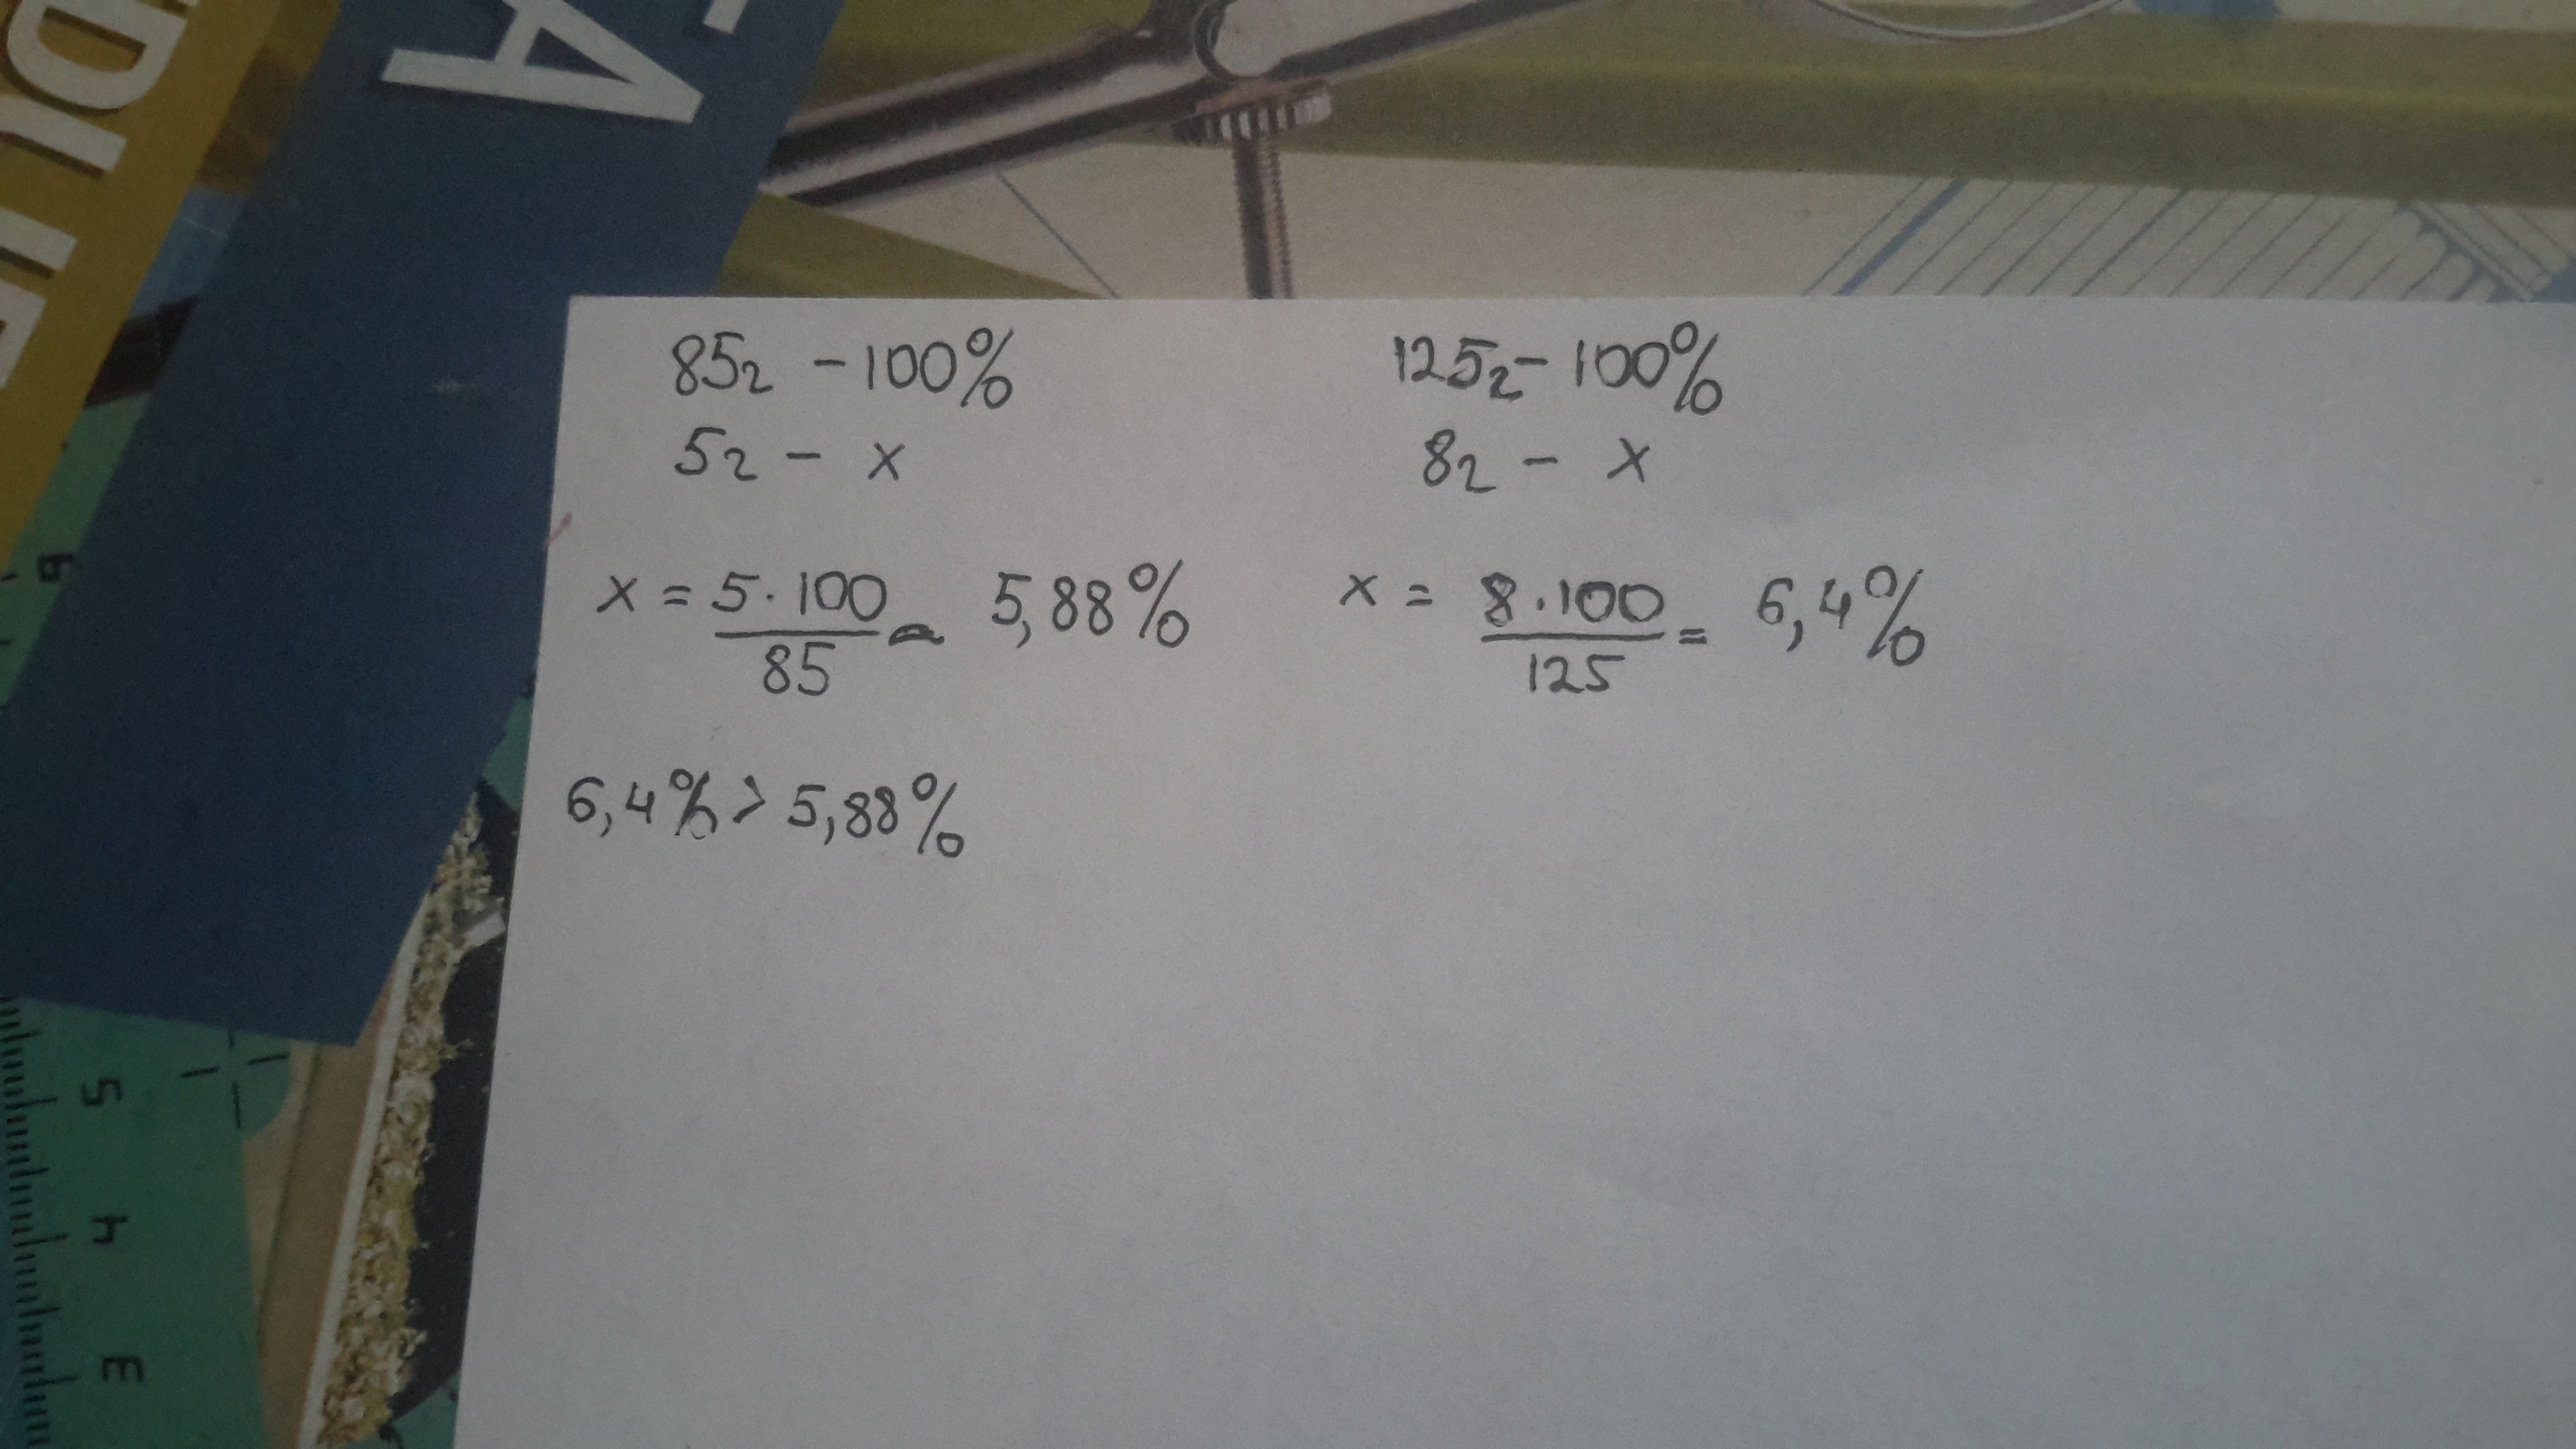 85г - 100%
5г - x
x = 5·100/85 ≈ 5,88%
125г - 100%
8г - x
x = 8·100/125 = 6,4%
6,4% > 5,88%
6
5
4
3